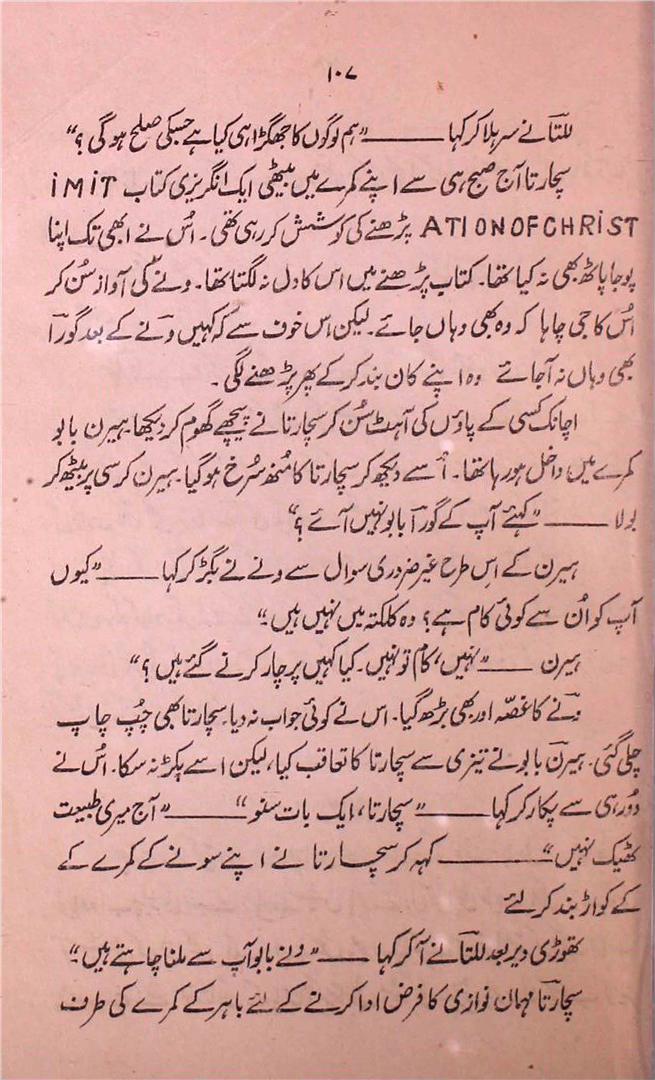 ۱۰۷
للتا نے سر ہلا کر کہا ——— ”ہم لوگوں کا جھگڑا ہی کیا ہے جسکی صلح ہوگی ؟“
سچارتا آج صبح ہی سے اپنے کمرے میں بیٹھی ایک انگریزی کتاب iMiT
ATIONOFCHRiST پڑھنے کی کوشش کر رہی تھی۔ اُس نے ابھی تک اپنا
پوجا پاٹھ بھی نہ کیا تھا۔ کتاب پڑھنے میں اس کا دل نہ لگتا تھا۔ ونے کی آواز سُن کر
اُس کا جی چاہا کہ وہ بھی وہاں جائے۔ لیکن اس خوف سے کہ کہیں ونے کے بعد گورا
بھی وہاں نہ آجائے وہ اپنے کان بند کر کے پھر پڑھنے لگی۔
اچانک کسی کے پاؤں کی آہٹ سُن کر سچارتا نے پیچھے گھوم کر دیکھا۔ ہیرن بابو
کمرے میں داخل ہو رہا تھا۔ اُسے دیکھ کر سچارتا کا مُنھ سُرخ ہوگیا۔ ہیرن کرسی پر بیٹھ کر
بولا ——— ”کہئے آپ کے گورا بابو نہیں آئے ؟“
ہیرن کے اِس طرح غیر ضروری سوال سے ونے نے بگڑ کر کہا ——— ”کیوں
آپ کو اُن سے کوئی کام ہے؟ وہ کلکتہ میں نہیں ہیں۔“
ہیرن ——— ”نہیں، کام تو نہیں۔ کیا کہیں پرچار کرنے گئے ہیں ؟“
ونے کا غصّہ اور بھی بڑھ گیا۔ اس نے کوئی جواب نہ دیا۔ سچارتا بھی چُپ چاپ
چلی گئی۔ ہیرن بابو نے تیزی سے سچارتا کا تعاقب کیا، لیکن اسے پکڑ نہ سکا۔ اُس نے
دُور ہی سے پکار کر کہا ——— ”سچارتا، ایک بات سنو“ ——— ”آج میری طبیعت
ٹھیک نہیں“ ——— کہہ کر سچارتا نے اپنے سونے کے کمرے کے
کے کواڑ بند کر لئے
تھوڑی دیر بعد للتا نے آکر کہا ——— ”ونے بابو آپ سے ملنا چاہتے ہیں۔“
سچارتا مہمان نوازی کا فرض ادا کرنے کے لئے باہر کے کمرے کی طرف